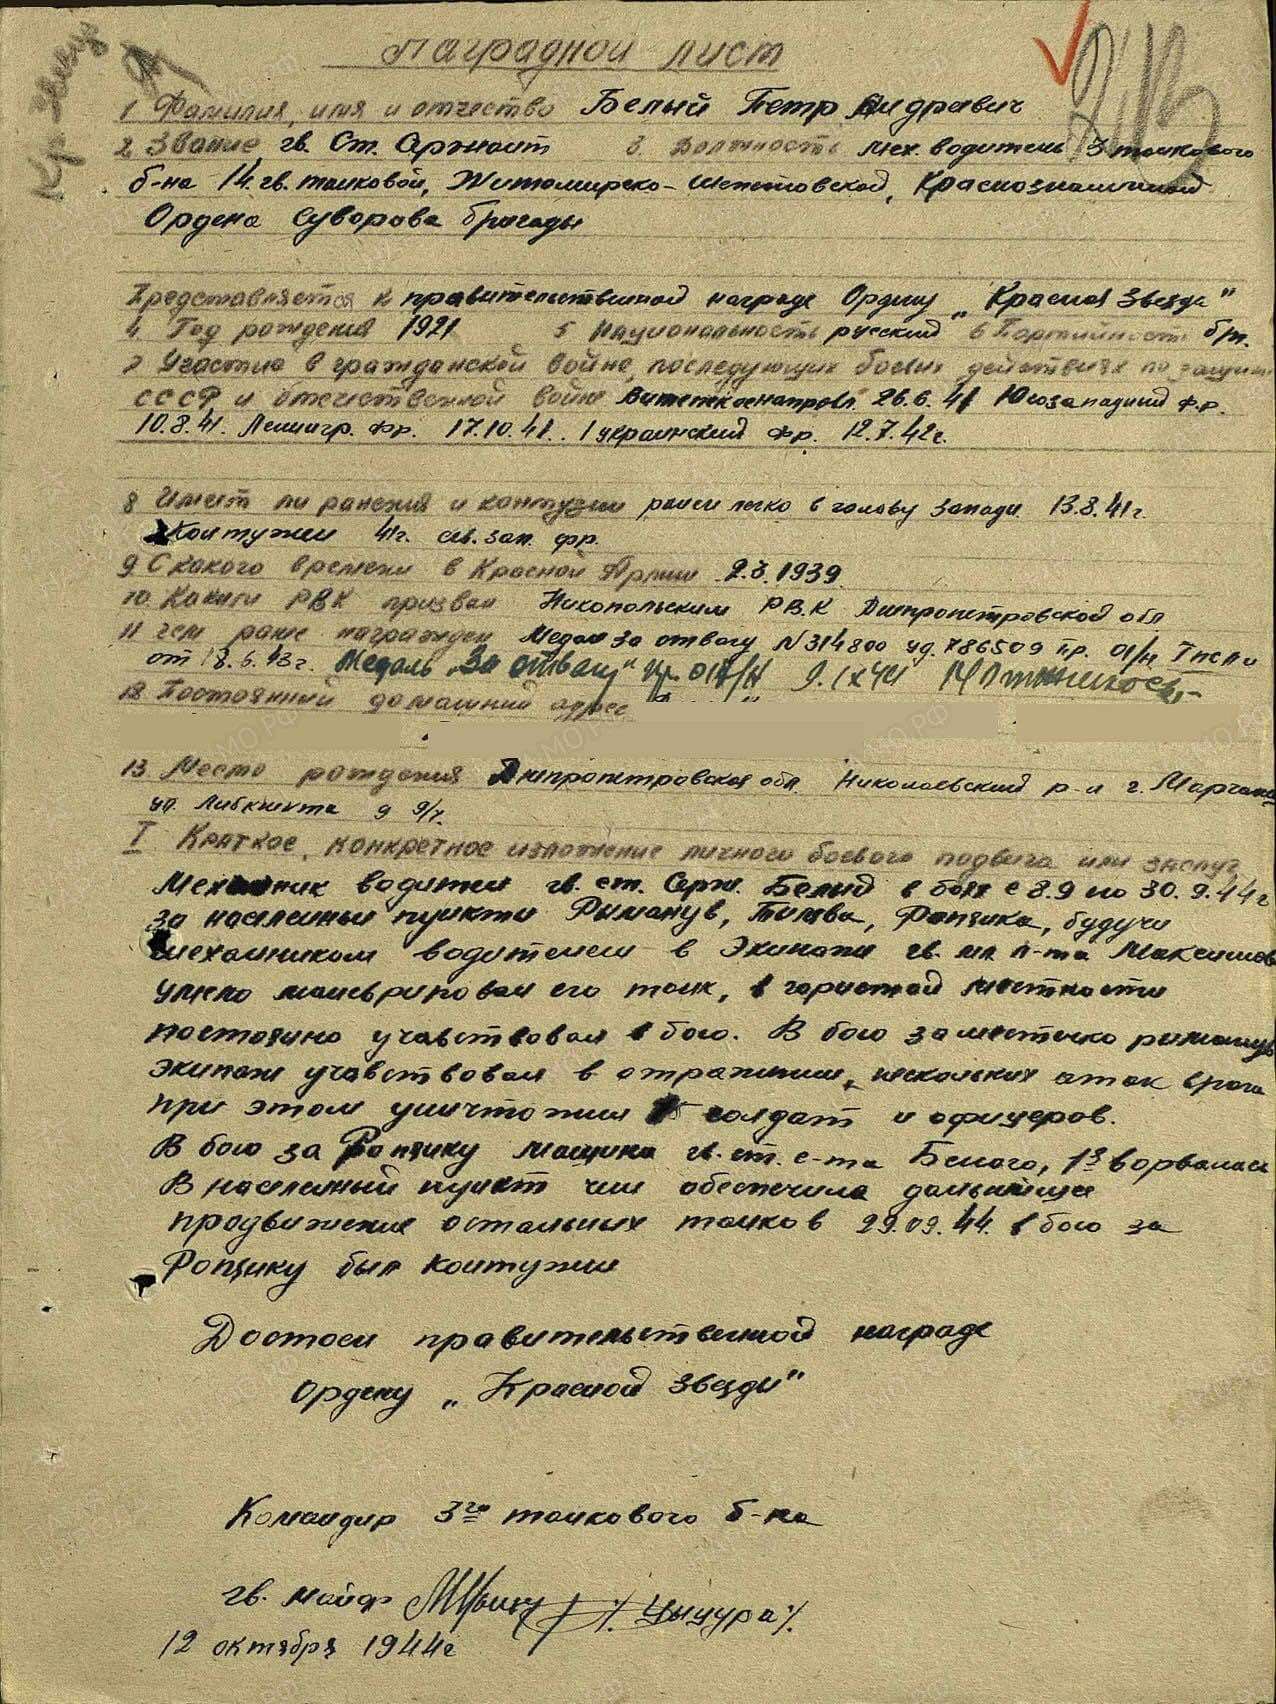 Кр. Звезд
Наградной лист
1 Фамилия, имя и отчество Белый Петр Андревич
2 Звание гв. Ст. Сржант 3. Должность мех. водитель 3 танкового
б-на 14. гв. танковой, Житомирско-Шепетовской, Краснознаменной
Ордена Суворова бригады
Представляется к правительственной награде Ордену „Красная звезда"
4 Год рождения 1921 5 Национальность русский 6 Партийность б/п.
7 Участие в гражданской войне, последующих боевых действиях по защите
СССР и отечественной войне 26.6.41 Югозападный фр.
10.8.41. Ленингр. фр. 17.10.41. 1 украинский фр. 12.7.42г.
8 Имеет ли ранения и контузии ранен легко в голову западн. 13.8.41г.
Контужен 41г. св. зап. фр.
9 С какого времени в Красной Армии 2.3.1939
10 Каким РВК призван Никопольским РВК Днепропетровской обл
11 Чем ранее награжден Медал за отвагу N 314800 уд. 786509 пр. 01/н
от 18.6.43г. Медаль „За отвагу" Пр. 017/Н 9.IX44
12 Постоянный домашний адрес
13 Место рождения Днепропетровская обл. Николаевский р-н г. Марганец
ул. Либкнехта д 9/7.
I Краткое, конкретное изложение личного боевого подвига или заслуг
Механик водител гв. ст. Серж. Белый в боях с 8.9 по 30.9.44г
за населенные пункти Рыманув, Тылява, Ропянка, будучи
механником водителем в Экипаже гв. мл л-та Максимов
умело маневрировал его танк, в гористой местности
постоянно учавствовал в бою. В бою за местечко рыманув
экипаж учавствовал в отражении, нескольких атак врага
при этом уничтожил 15 солдат и офицеров.
В бою за Ропянку машина гв. ст. с-та Белого, 1й ворвалась
В населенный пункт чем обеспечила дальнейшее
продвижение остальных танков 29.09.44. в бою за
Ропянку был контужен
Достоен правительственной награде
Ордену „Красной звезды"
Командир 3го танкового б-на
гв. майор /. Цыцура /.
12 октября 1944г